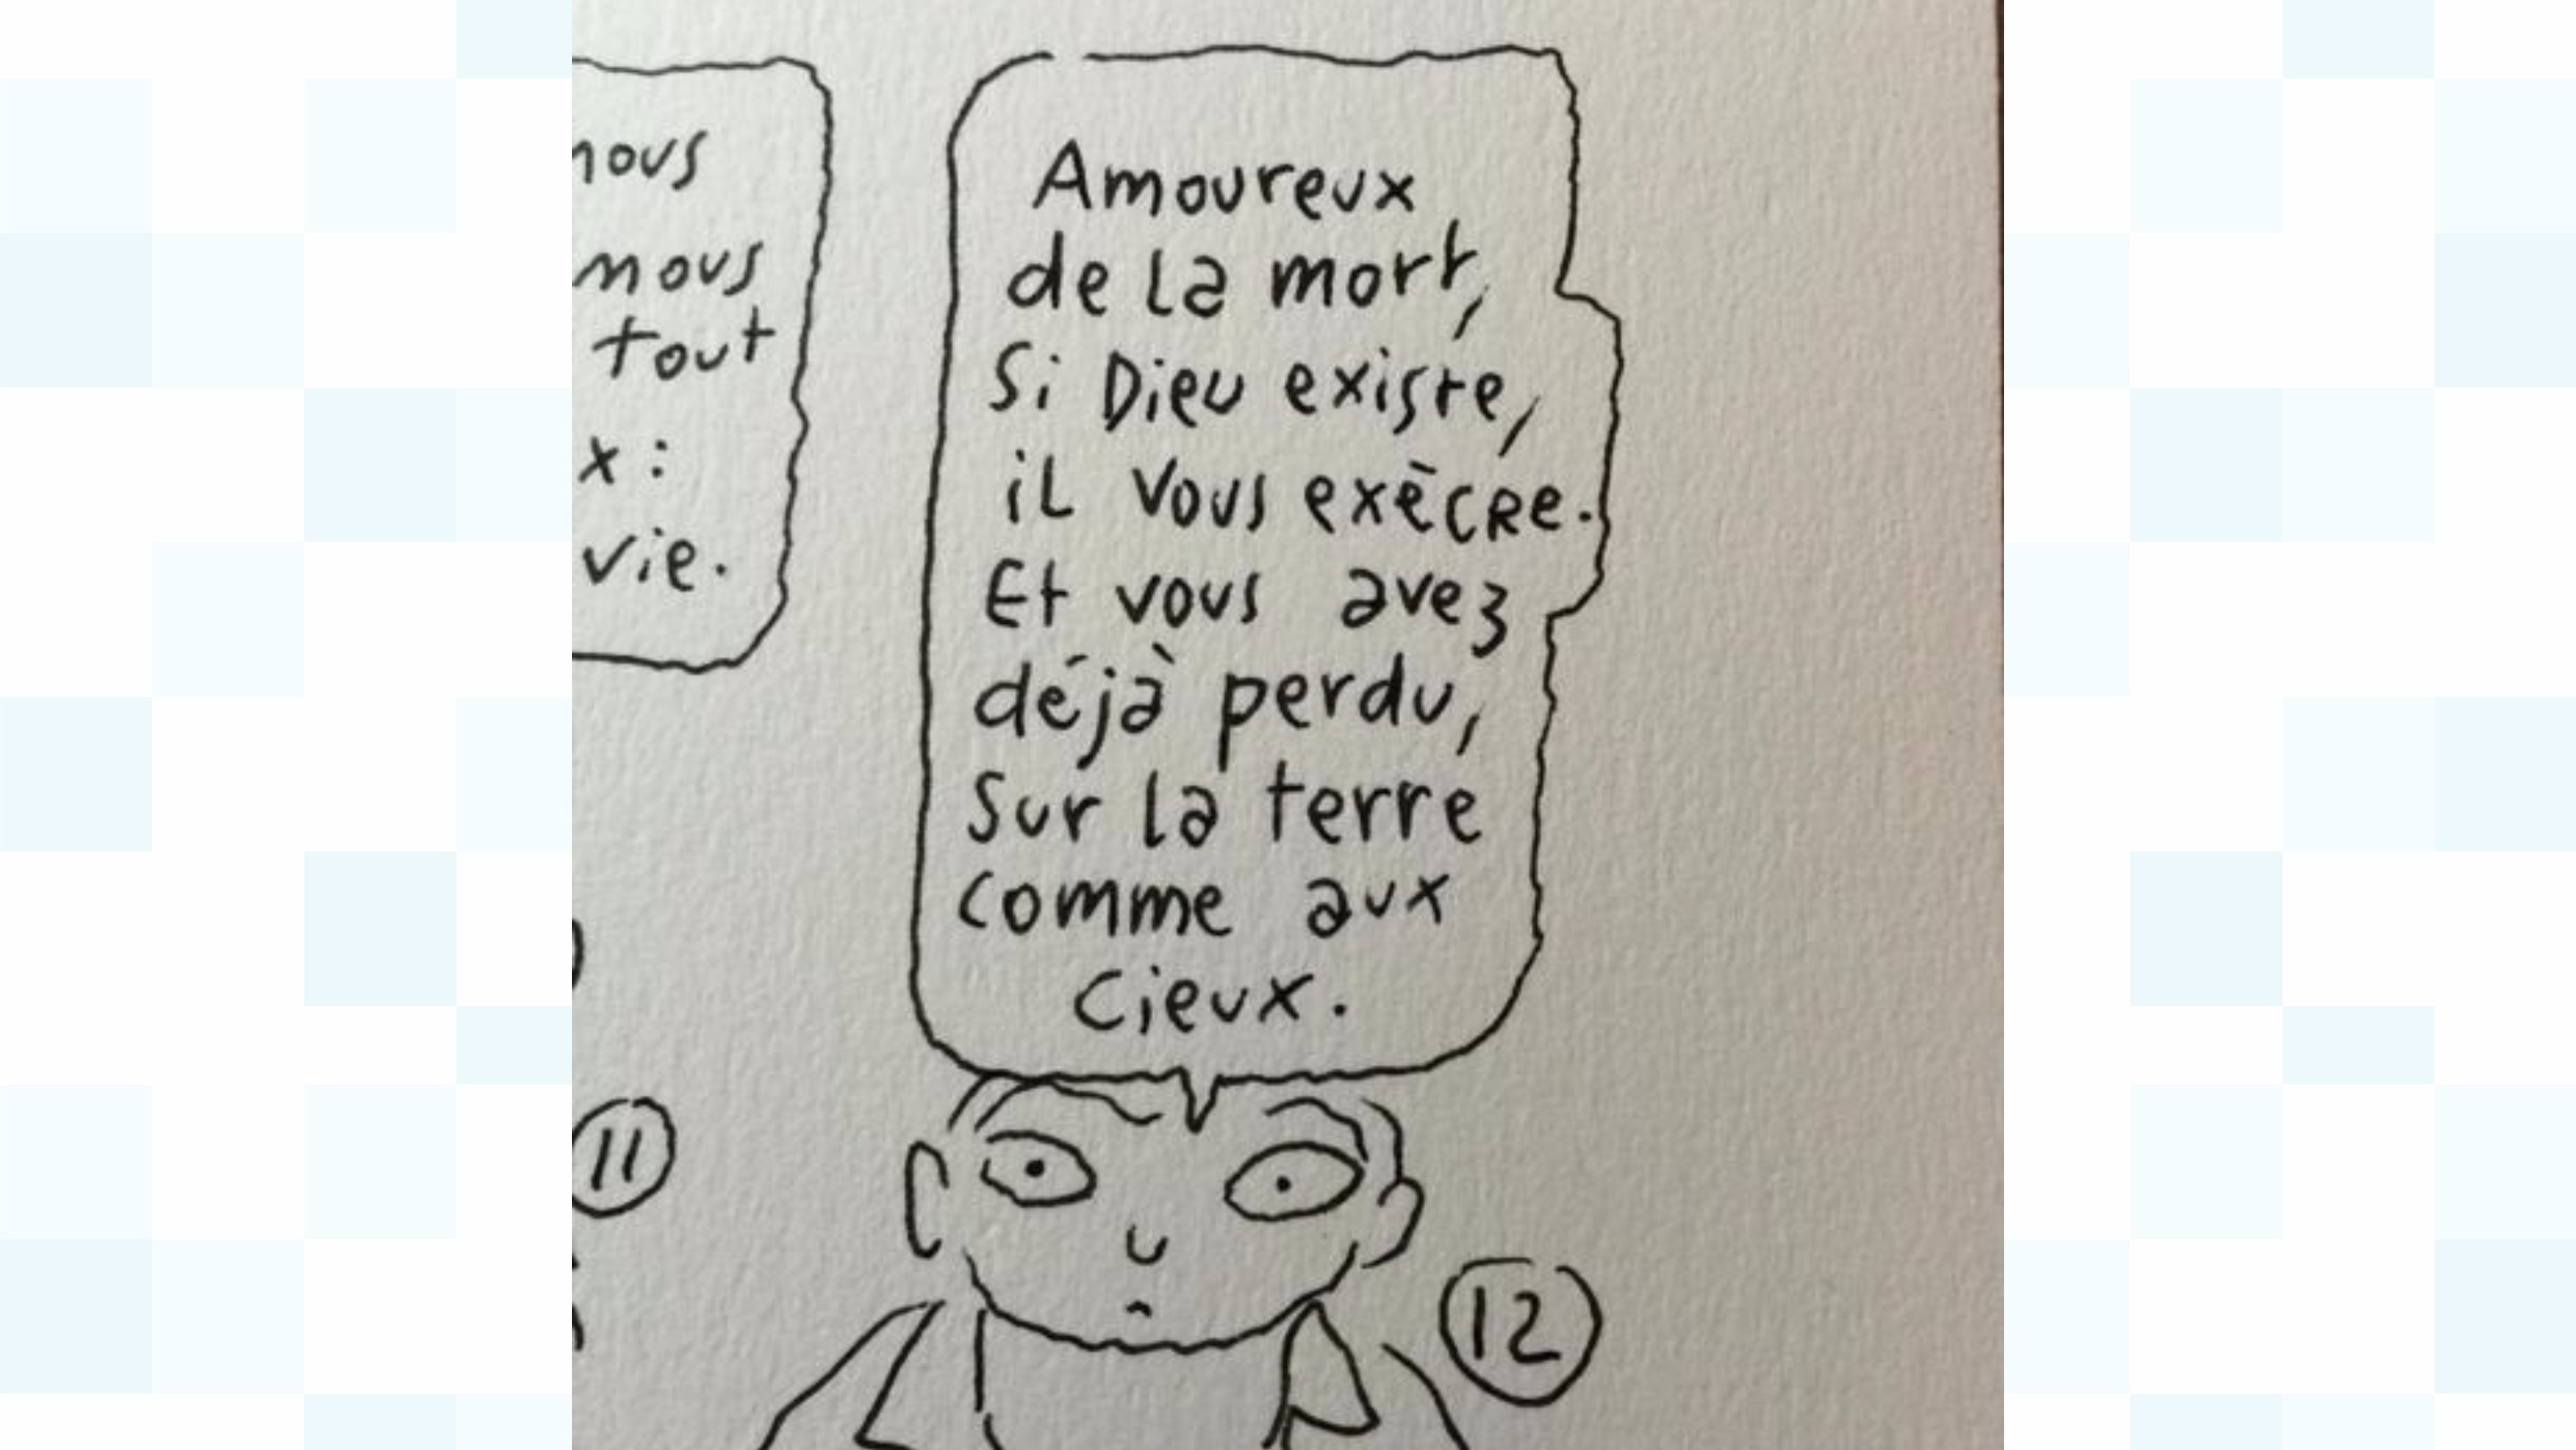 nous
nous
tout
x :
vie.
Amoureux
de la mort,
Si Dieu existe,
il vous exècre.
Et vous avez
déjà perdu,
Sur la terre
comme aux
cieux.
11
12